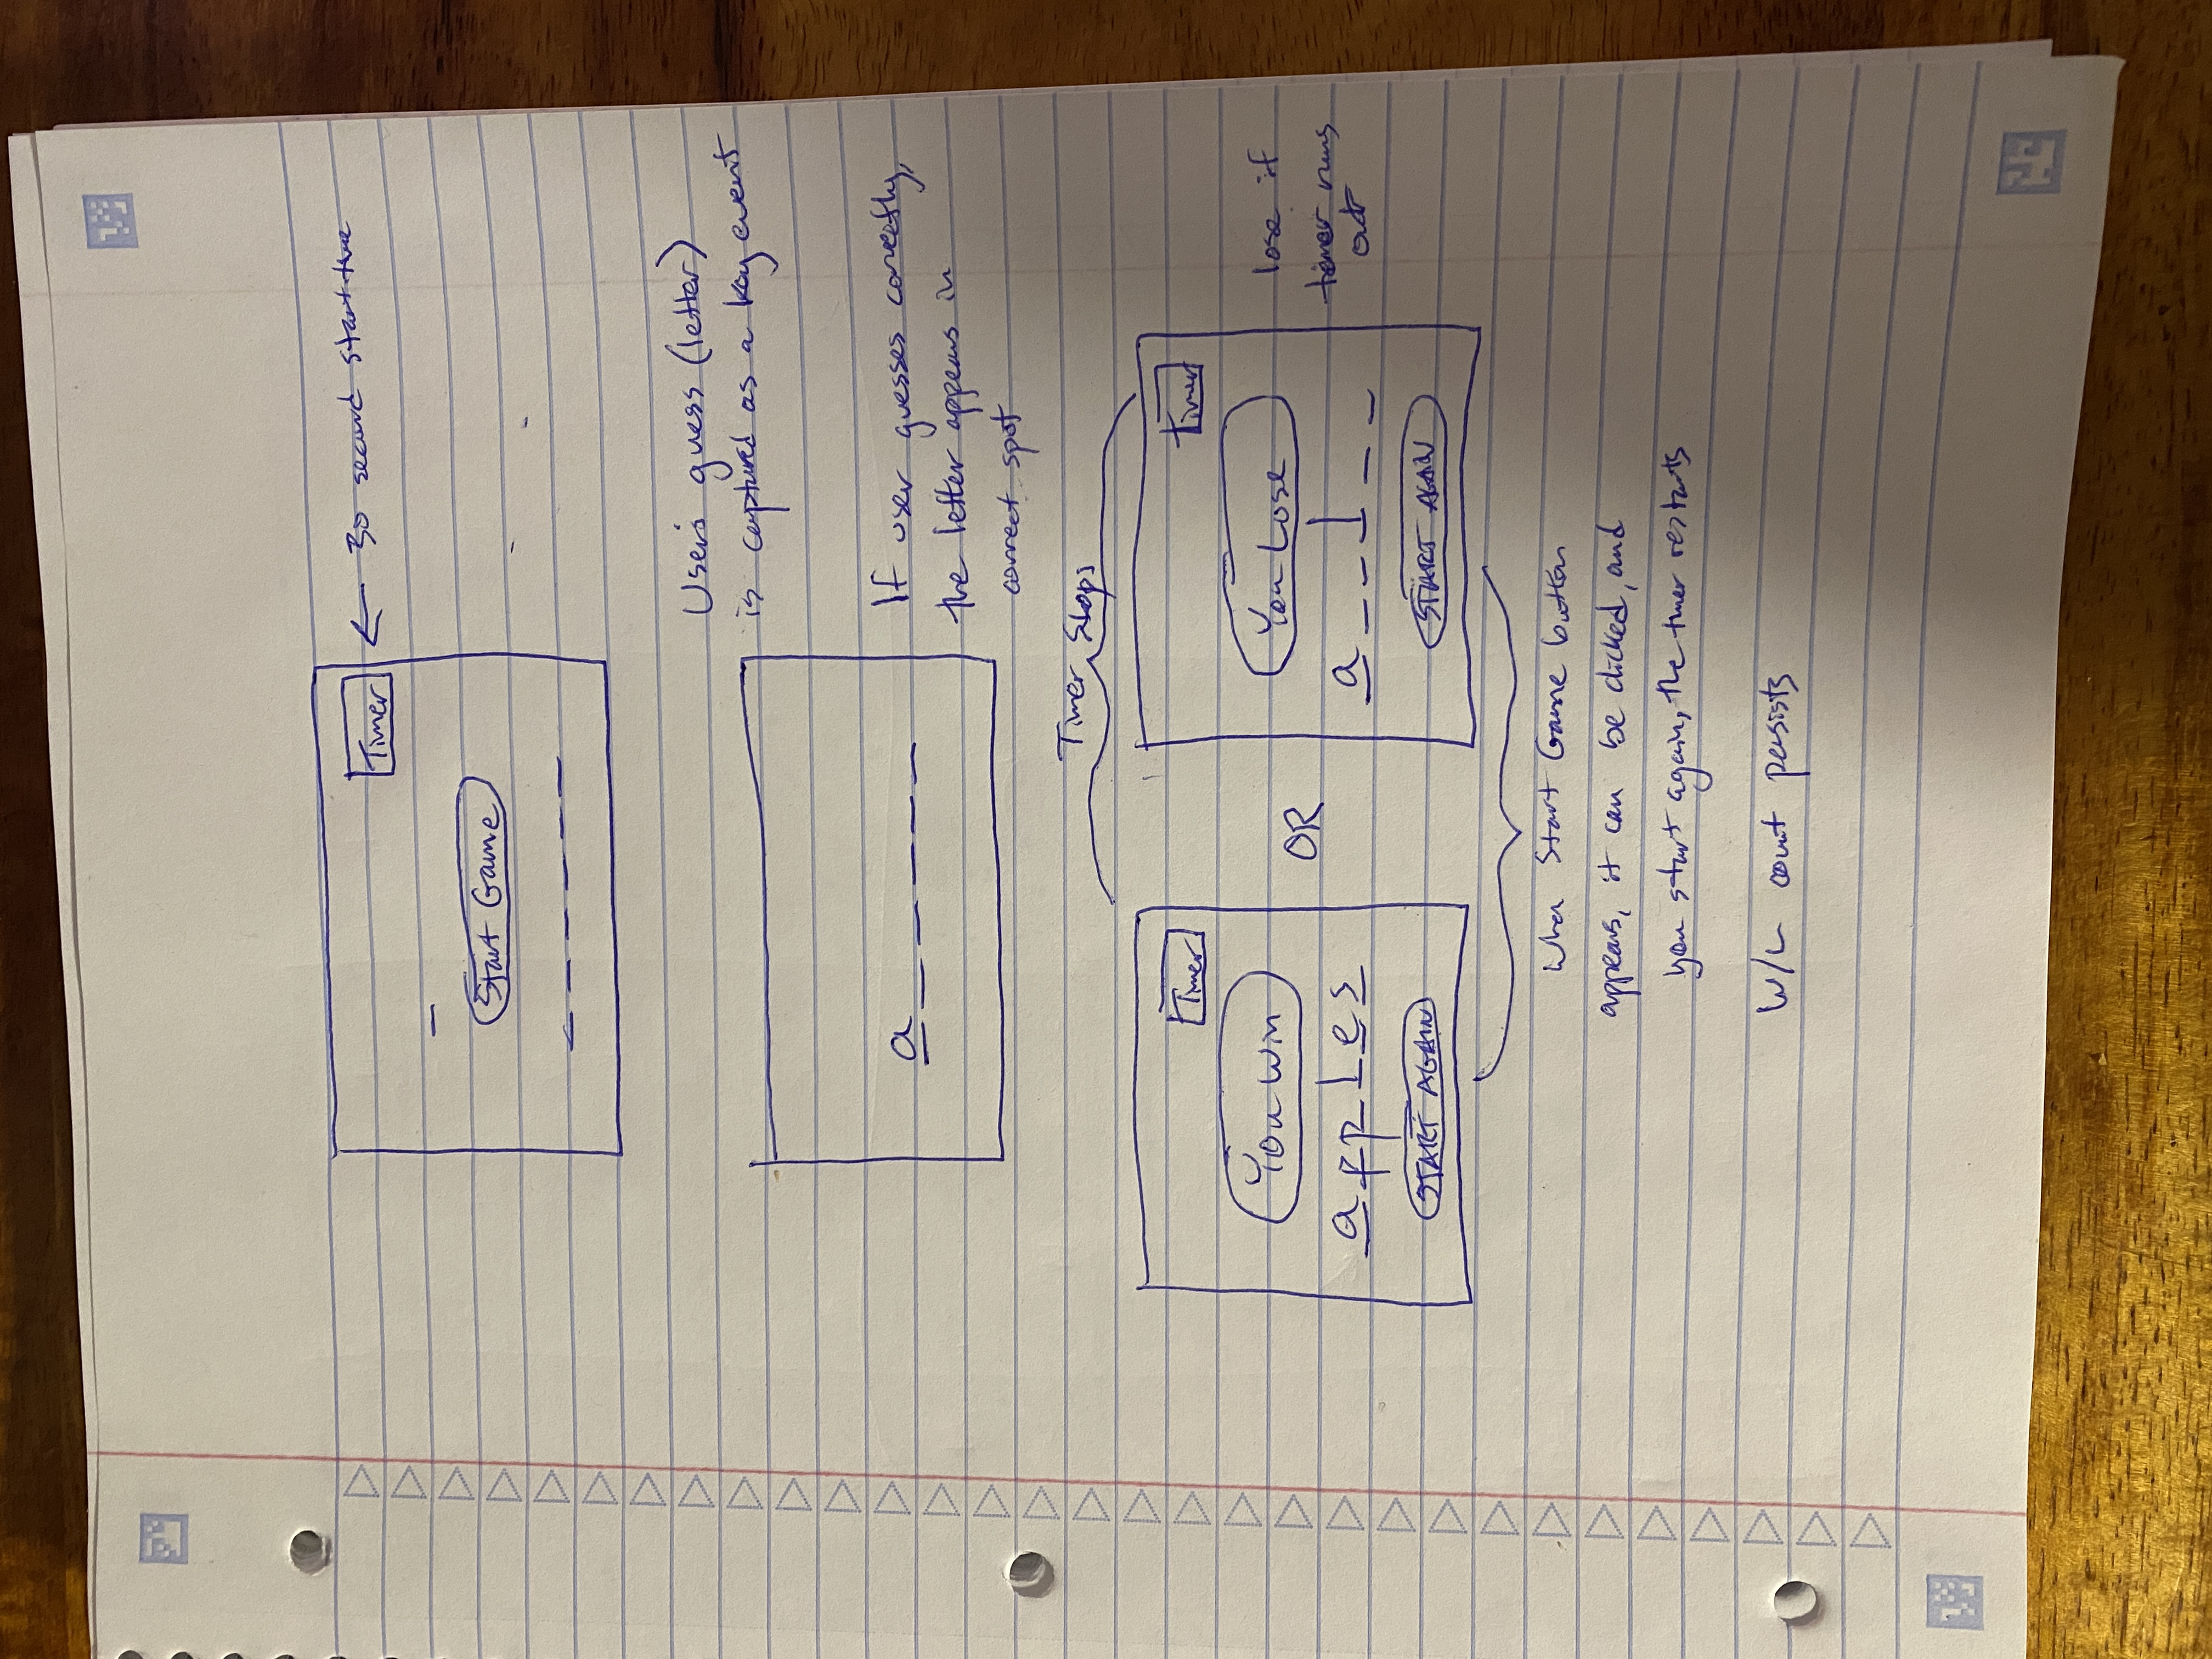 Timer
← 30 second start time
Start Game
_ _ _ _ _ _
User's guess (letter)
is captured as a key event
a _ _ _ _ _
If user guesses correctly,
the letter appears in
correct spot
Timer Stops
Timer
You Win
apples
START AGAIN
OR
Timer
You Lose
a _ _ l _ _
START AGAIN
lose if
timer runs
out
When Start Game button
appears, it can be clicked, and
you start again, the timer restarts
W/L count persists